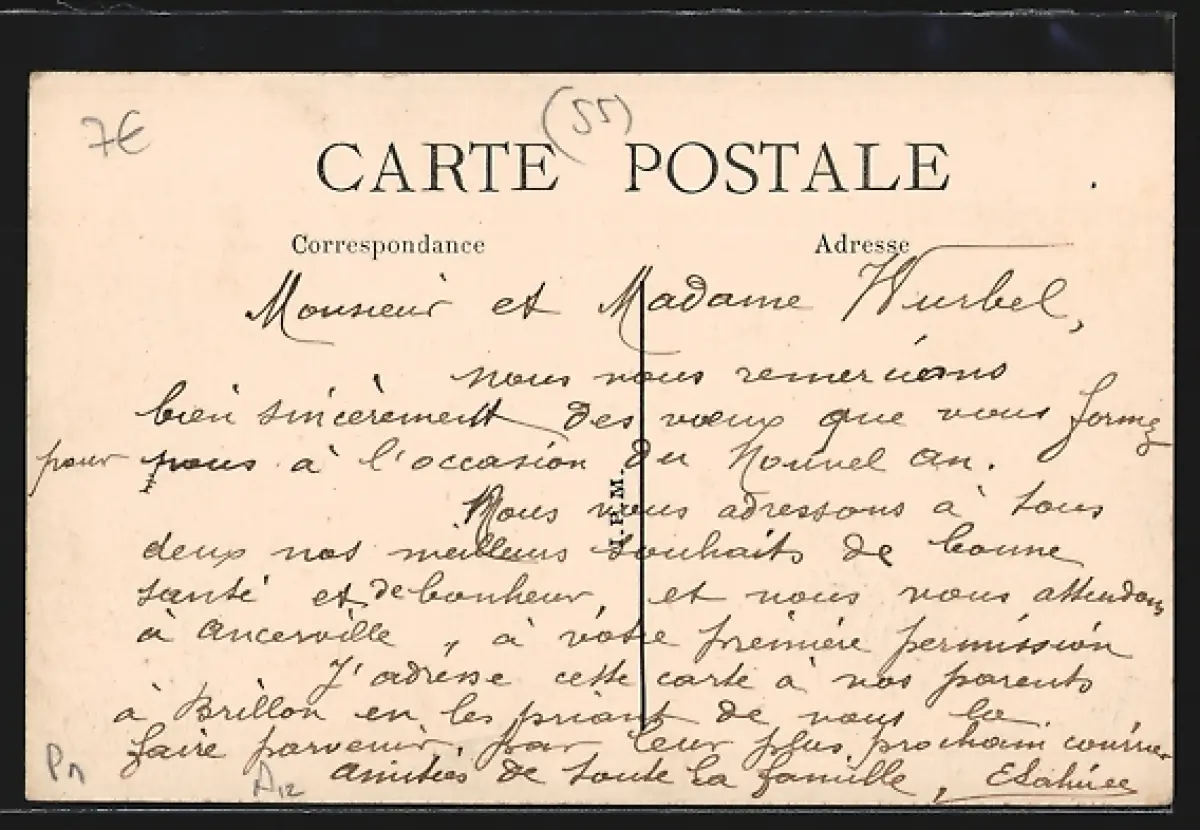 7€
(55)
CARTE POSTALE
Correspondance
Adresse
Monsieur et Madame Wurbel,
Nous vous remercions
bien sincèrement des vœux que vous formez
pour nous à l'occasion du Nouvel an.
Nous vous adressons à tous
deux nos meilleurs souhaits de bonne
santé et de bonheur, et nous vous attendons
à Ancerville, à votre première permission
J'adresse cette carte à nos parents
à Brillon en les priant de vous la
faire parvenir, par leur plus prochain courrier
Amitiés de toute la famille,
A12